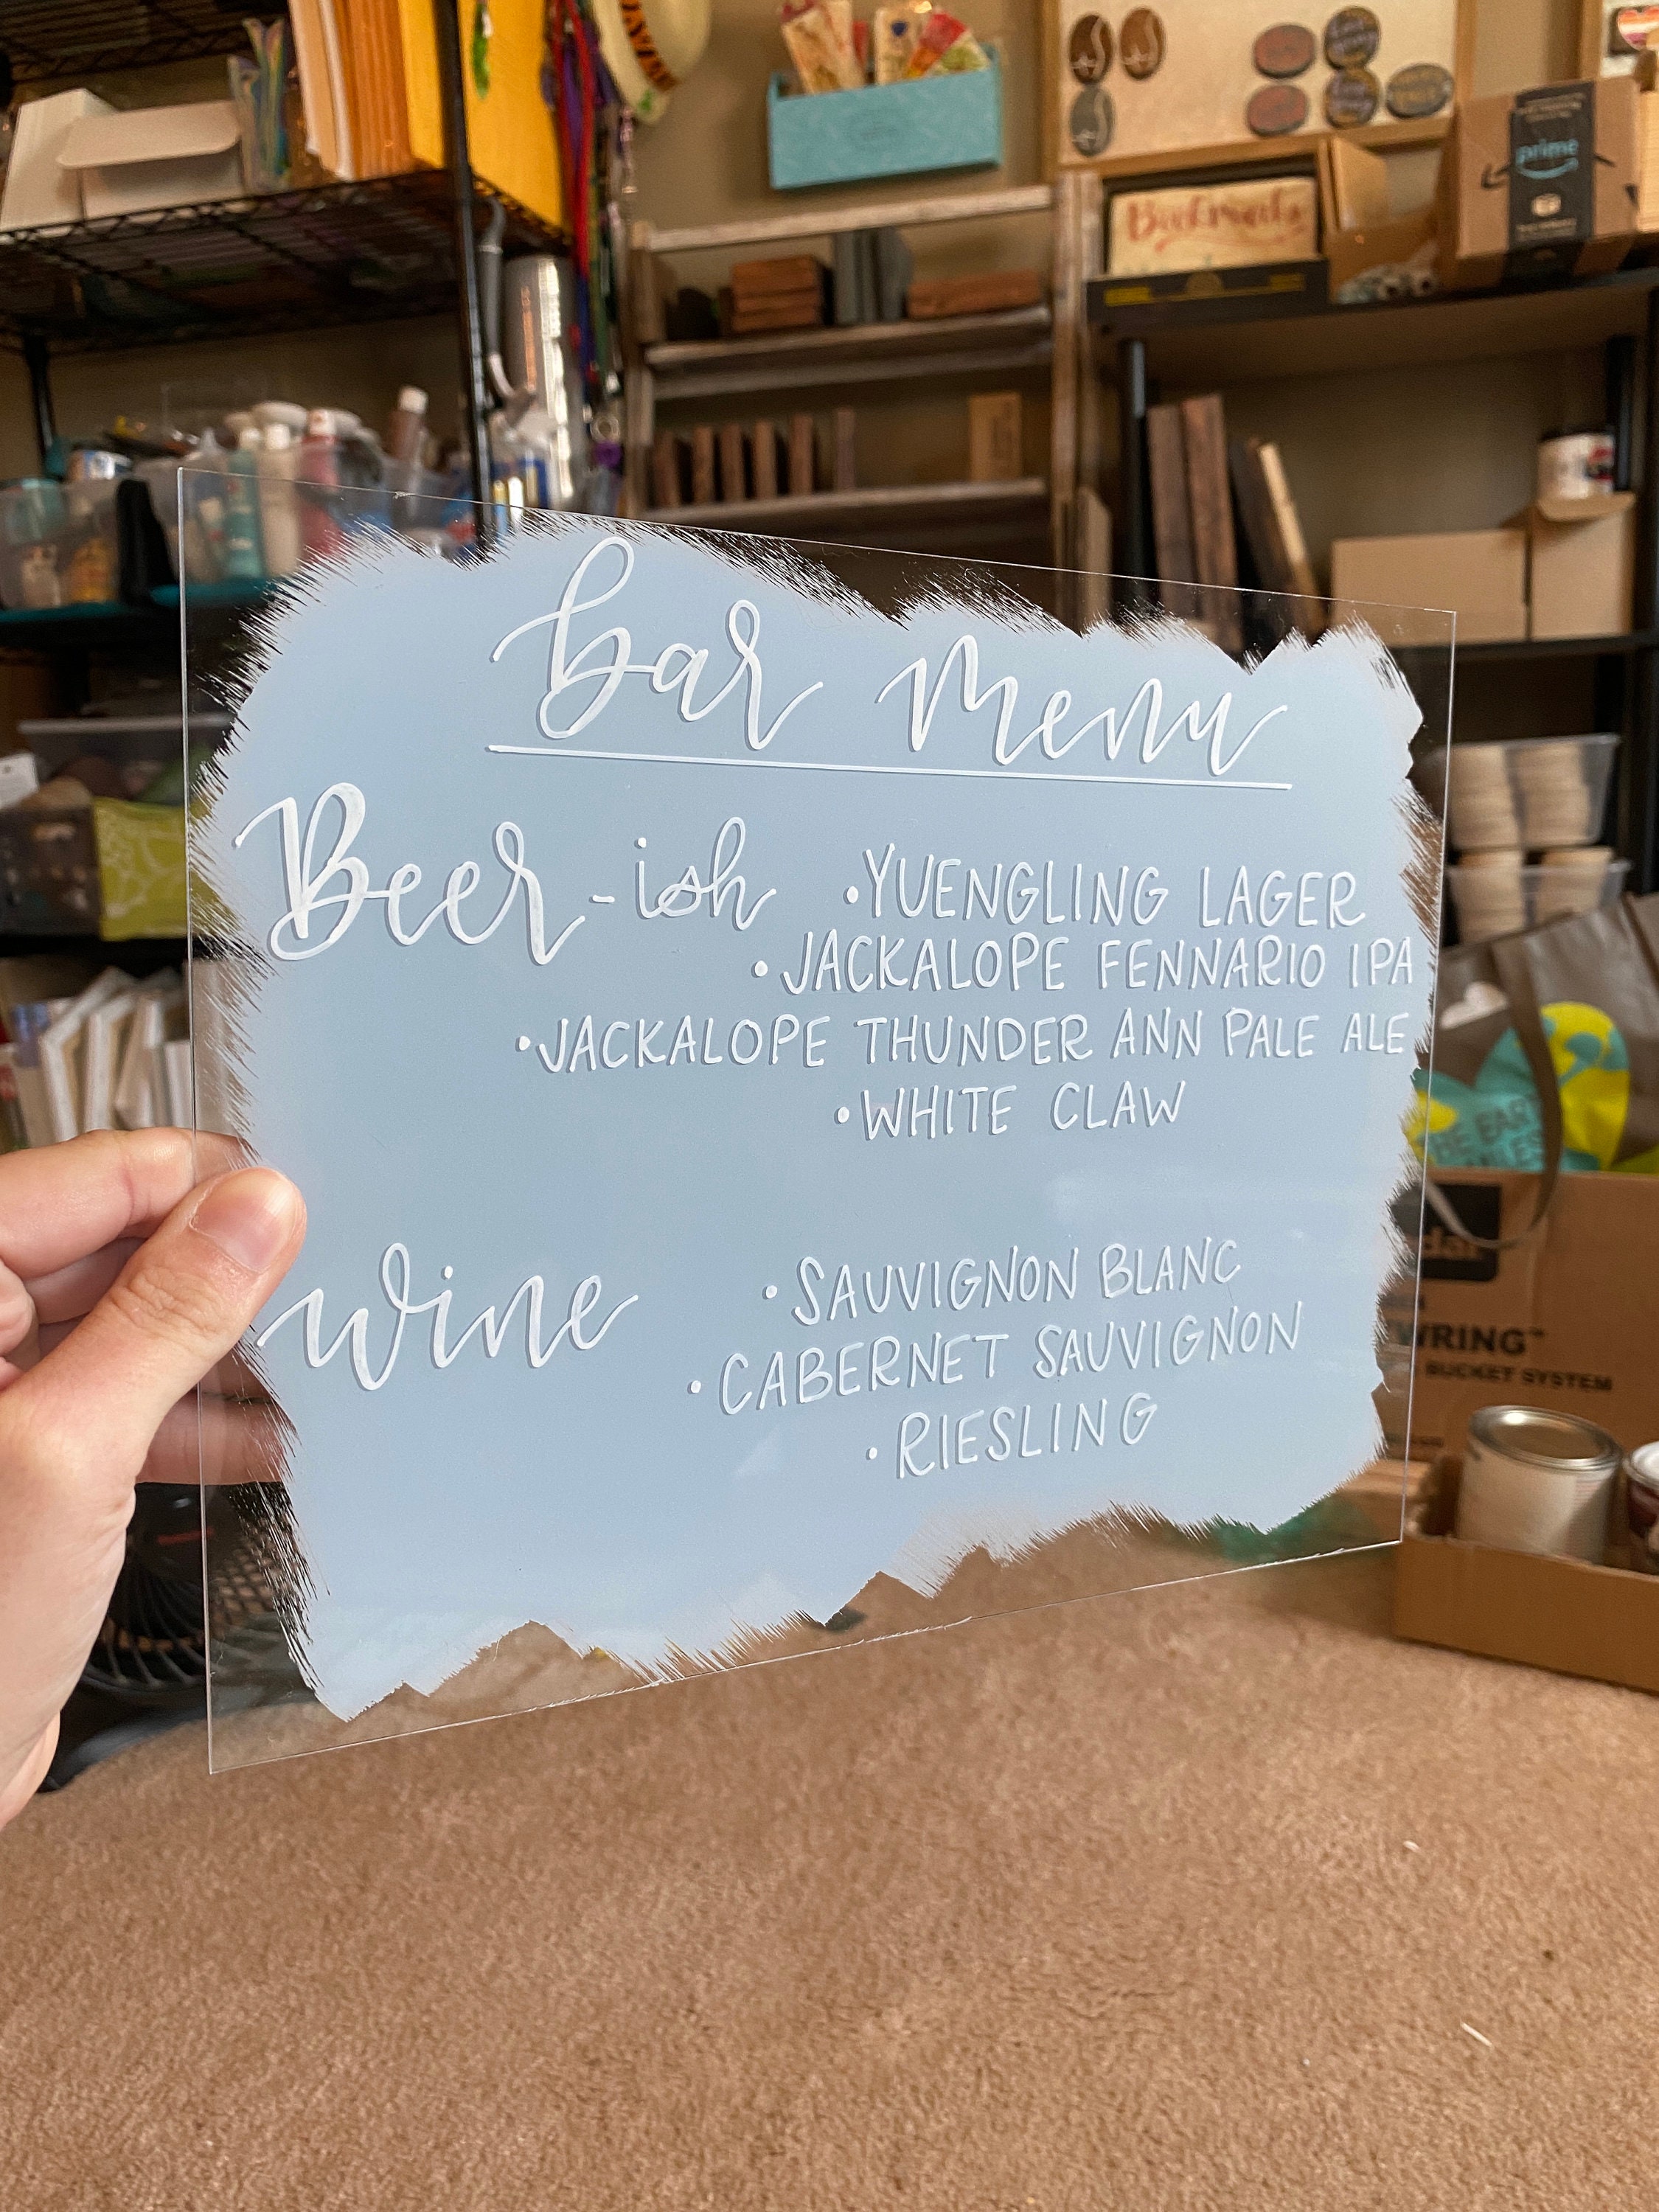 Bookmarks
prime
bar menu
Beer-ish
•YUENGLING LAGER
•JACKALOPE FENNARIO IPA
•JACKALOPE THUNDER ANN PALE ALE
•WHITE CLAW
wine
•SAUVIGNON BLANC
•CABERNET SAUVIGNON
•RIESLING
WRING™
BUCKET SYSTEM